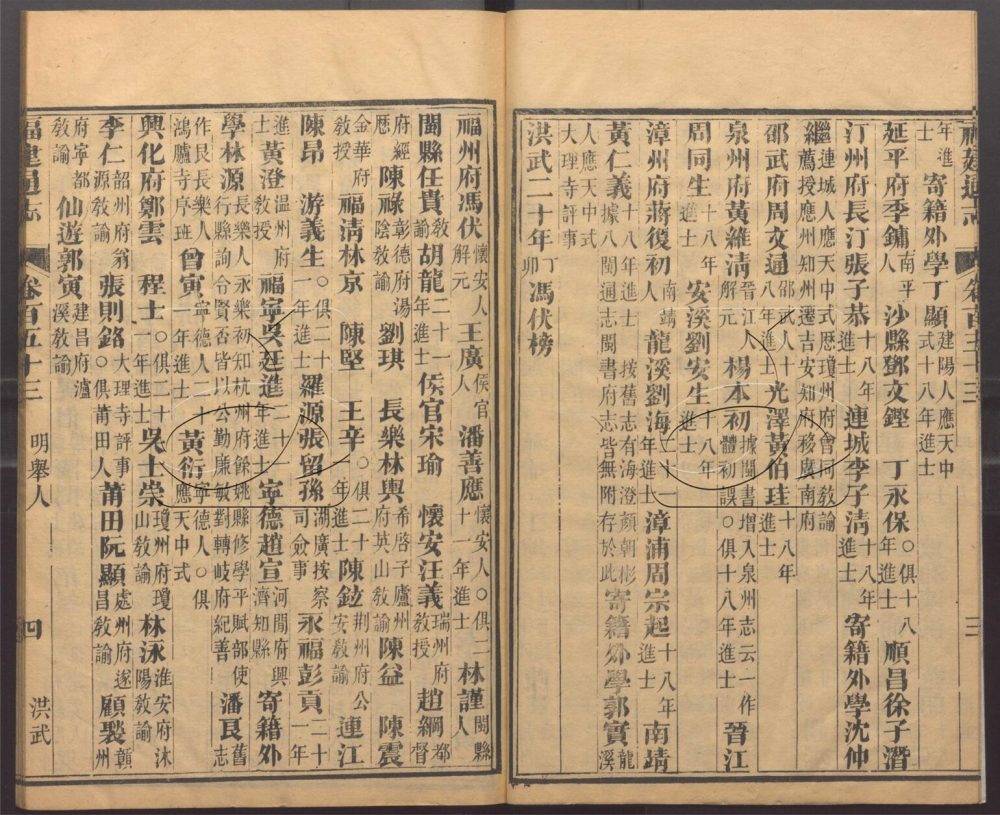 福建通志 卷百五十三 三
年進士 寄籍外學丁顯建陽人應天中式十八年進士
延平府季鏞南平人 沙縣鄧文鏗 丁永保〇俱十八年進士 順昌徐子潛
汀州府長汀張子恭十八年進士 連城李子清十八年進士 寄籍外學沈仲
繼連城人應天中式歷瓊州府會同教諭薦授應州知州遷吉安知府移廣南府
邵武府周文通邵武人 光澤黃伯珪十八年進士
泉州府黃維清晉江人解元 楊本初據閩書增入泉州志云一作體初誤〇俱十八年進士 晉江
周同生十八年進士 安溪劉安生十八年進士
漳州府蔣復初南靖人 龍溪劉海二十一年進士 漳浦周宗起十八年進士 南靖
黃仁義十八年進士 按舊志有海澄顏朝彬據八閩通志閩書府志皆無附存於此 寄籍外學郭實龍溪
人應天中式大理寺評事
洪武二十年丁卯馮伏榜
福州府馮伏懷安人解元 王廣侯官人 潘善應懷安人〇俱二十一年進士 林謹閩縣人
閩縣任貴教諭 胡龍二十一年進士 侯官宋瑜 懷安汪義瑞州府教授 趙綱都督
府經歷 陳祿彰德府湯陰教諭 劉琪 長樂林輿希啓子廬州府英山教諭 陳益 陳震
金華府教授 福清林京 陳堅 王辛〇俱二十一年進士 陳鉉荊州府公安教諭 連江
陳昂 游義生〇俱二十一年進士 羅源張留孫湖廣按察司僉事 永福彭貢二十一年
進士 黃澄溫州府教授 福寧吳廷進二十一年進士 寧德趙宣河間府興濟知縣 寄籍外
學林源長樂人永樂初知杭州府餘姚縣修學平賦部使行縣詢令賢否皆以公勤廉敏對轉岐府紀善 潘艮舊志
作艮長樂人鴻臚寺序班 曾寅寧德人二十一年進士 黃衍寧德人〇俱應天中式
興化府鄭雲 程士〇俱二十一年進士 吳士崇瓊州府瓊山教諭 林泳淮安府沭陽教諭
李仁韶州府翁源教諭 張則銘大理寺評事〇俱莆田人 莆田阮顯處州府遂昌教諭 顧褧贛州
府寧都教諭 仙遊郭寅建昌府瀘溪教諭
福建通志 卷百五十三 明舉人 四 洪武